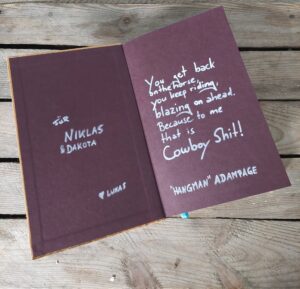 FÜR
NIKLAS
& DAKOTA
♥ LUKAS
You get back
on the horse,
you keep riding,
blazing on ahead.
Because to me
that is
Cowboy Shit!
"HANGMAN" ADAM PAGE